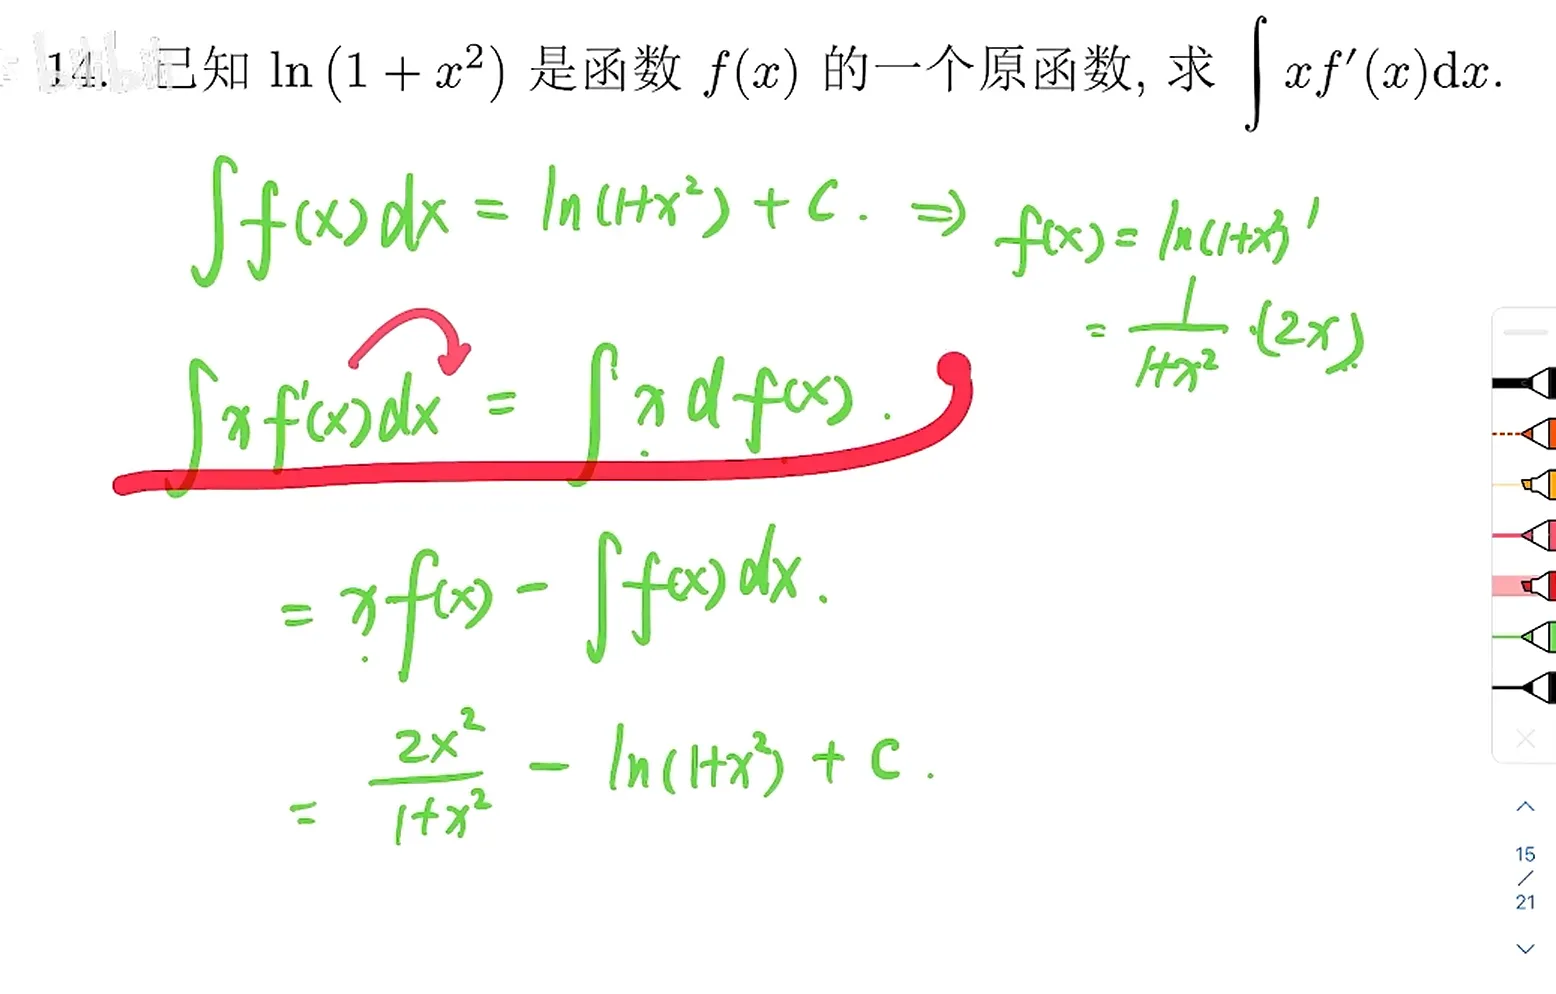 14. 已知 ln (1 + x²) 是函数 f(x) 的一个原函数, 求 ∫ xf′(x)dx.
∫f(x)dx = ln(1+x²) + C. ⇒ f(x) = ln(1+x²)′
= 1/(1+x²) · (2x)
∫x f′(x)dx = ∫ x d f(x).
= x f(x) - ∫f(x)dx.
= 2x²/(1+x²) - ln(1+x²) + C.
15
/
21